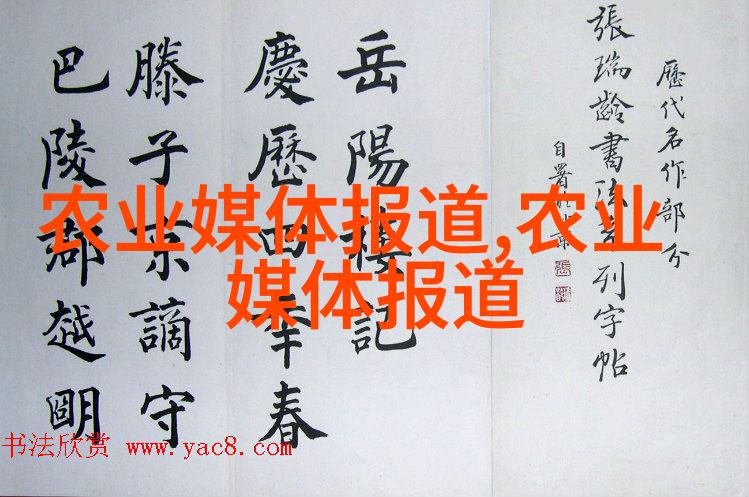 歷代名作部分
張瑞齡書法系列字帖
自署於北京
岳陽樓記
慶歷四年春
滕子京謫守
巴陵郡越明
农业媒体报道,农业
媒体报道
书法欣赏 www.yac8.com